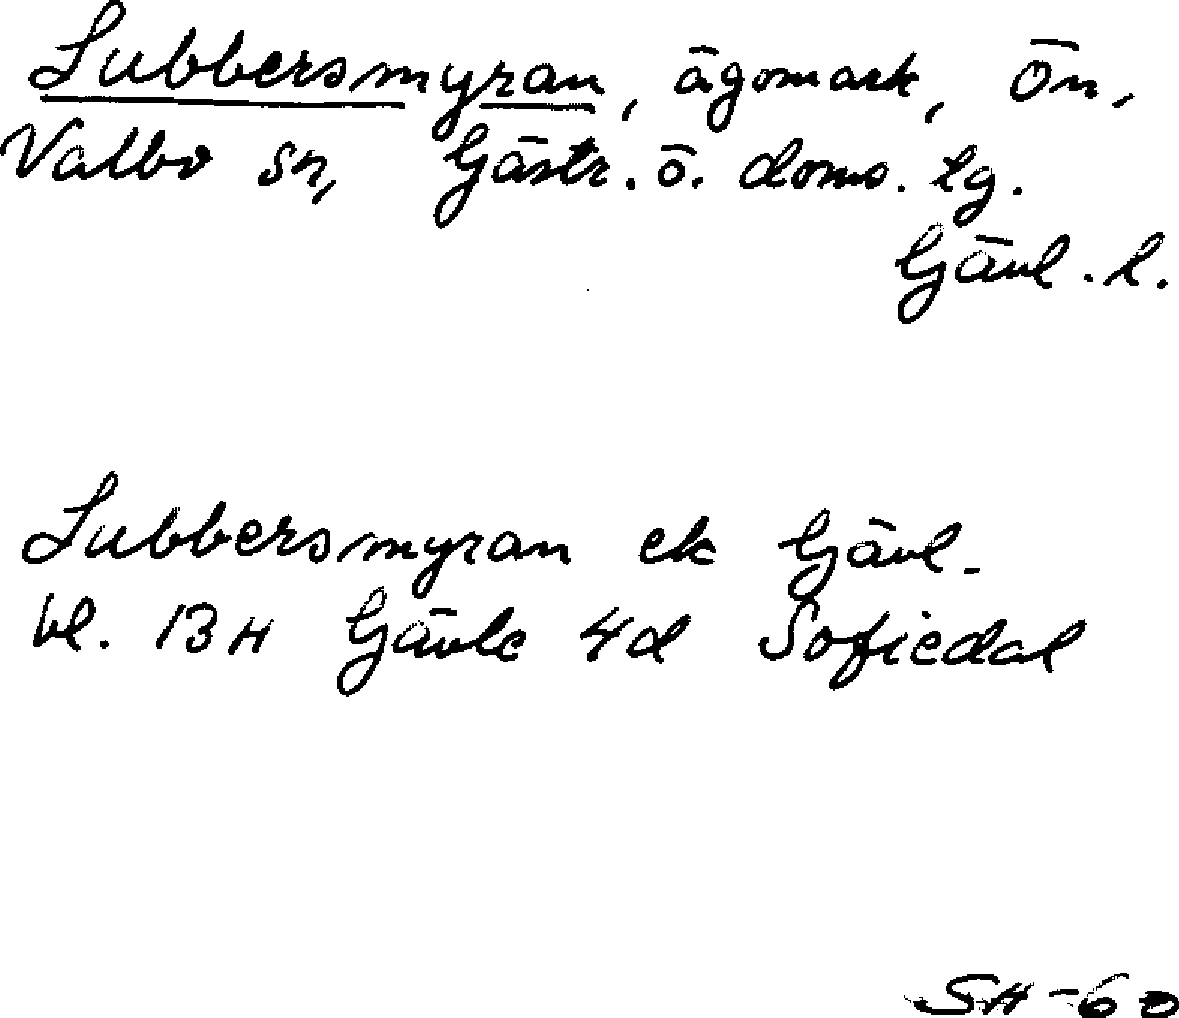 Lubbersmyran, ägomark, Ön,
Valbo sn, Gästr. ö. doms. lg.
Gävl. l.
Lubbersmyran ek Gävl.
bl. 13H Gävle 4d Sofiedal
SH-60